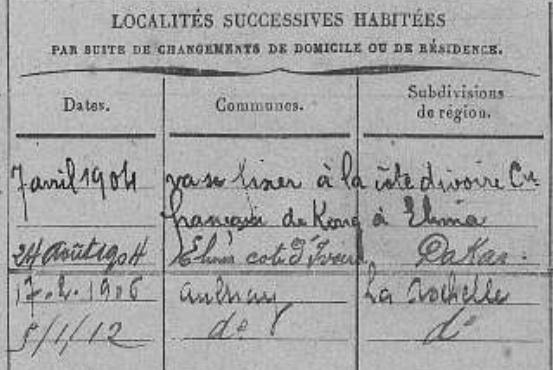 LOCALITÉS SUCCESSIVES HABITÉES
PAR SUITE DE CHANGEMENTS DE DOMICILE OU DE RÉSIDENCE.
Dates. Communes. Subdivisions
de région.
7 avril 1904 va se fixer à la côte d'ivoire Cie
française de Kong à Elima
24 Août 1904 Elima côte d'Ivoire Dakar.
17.2.1906 aulnay La Rochelle
5/1/12 do do